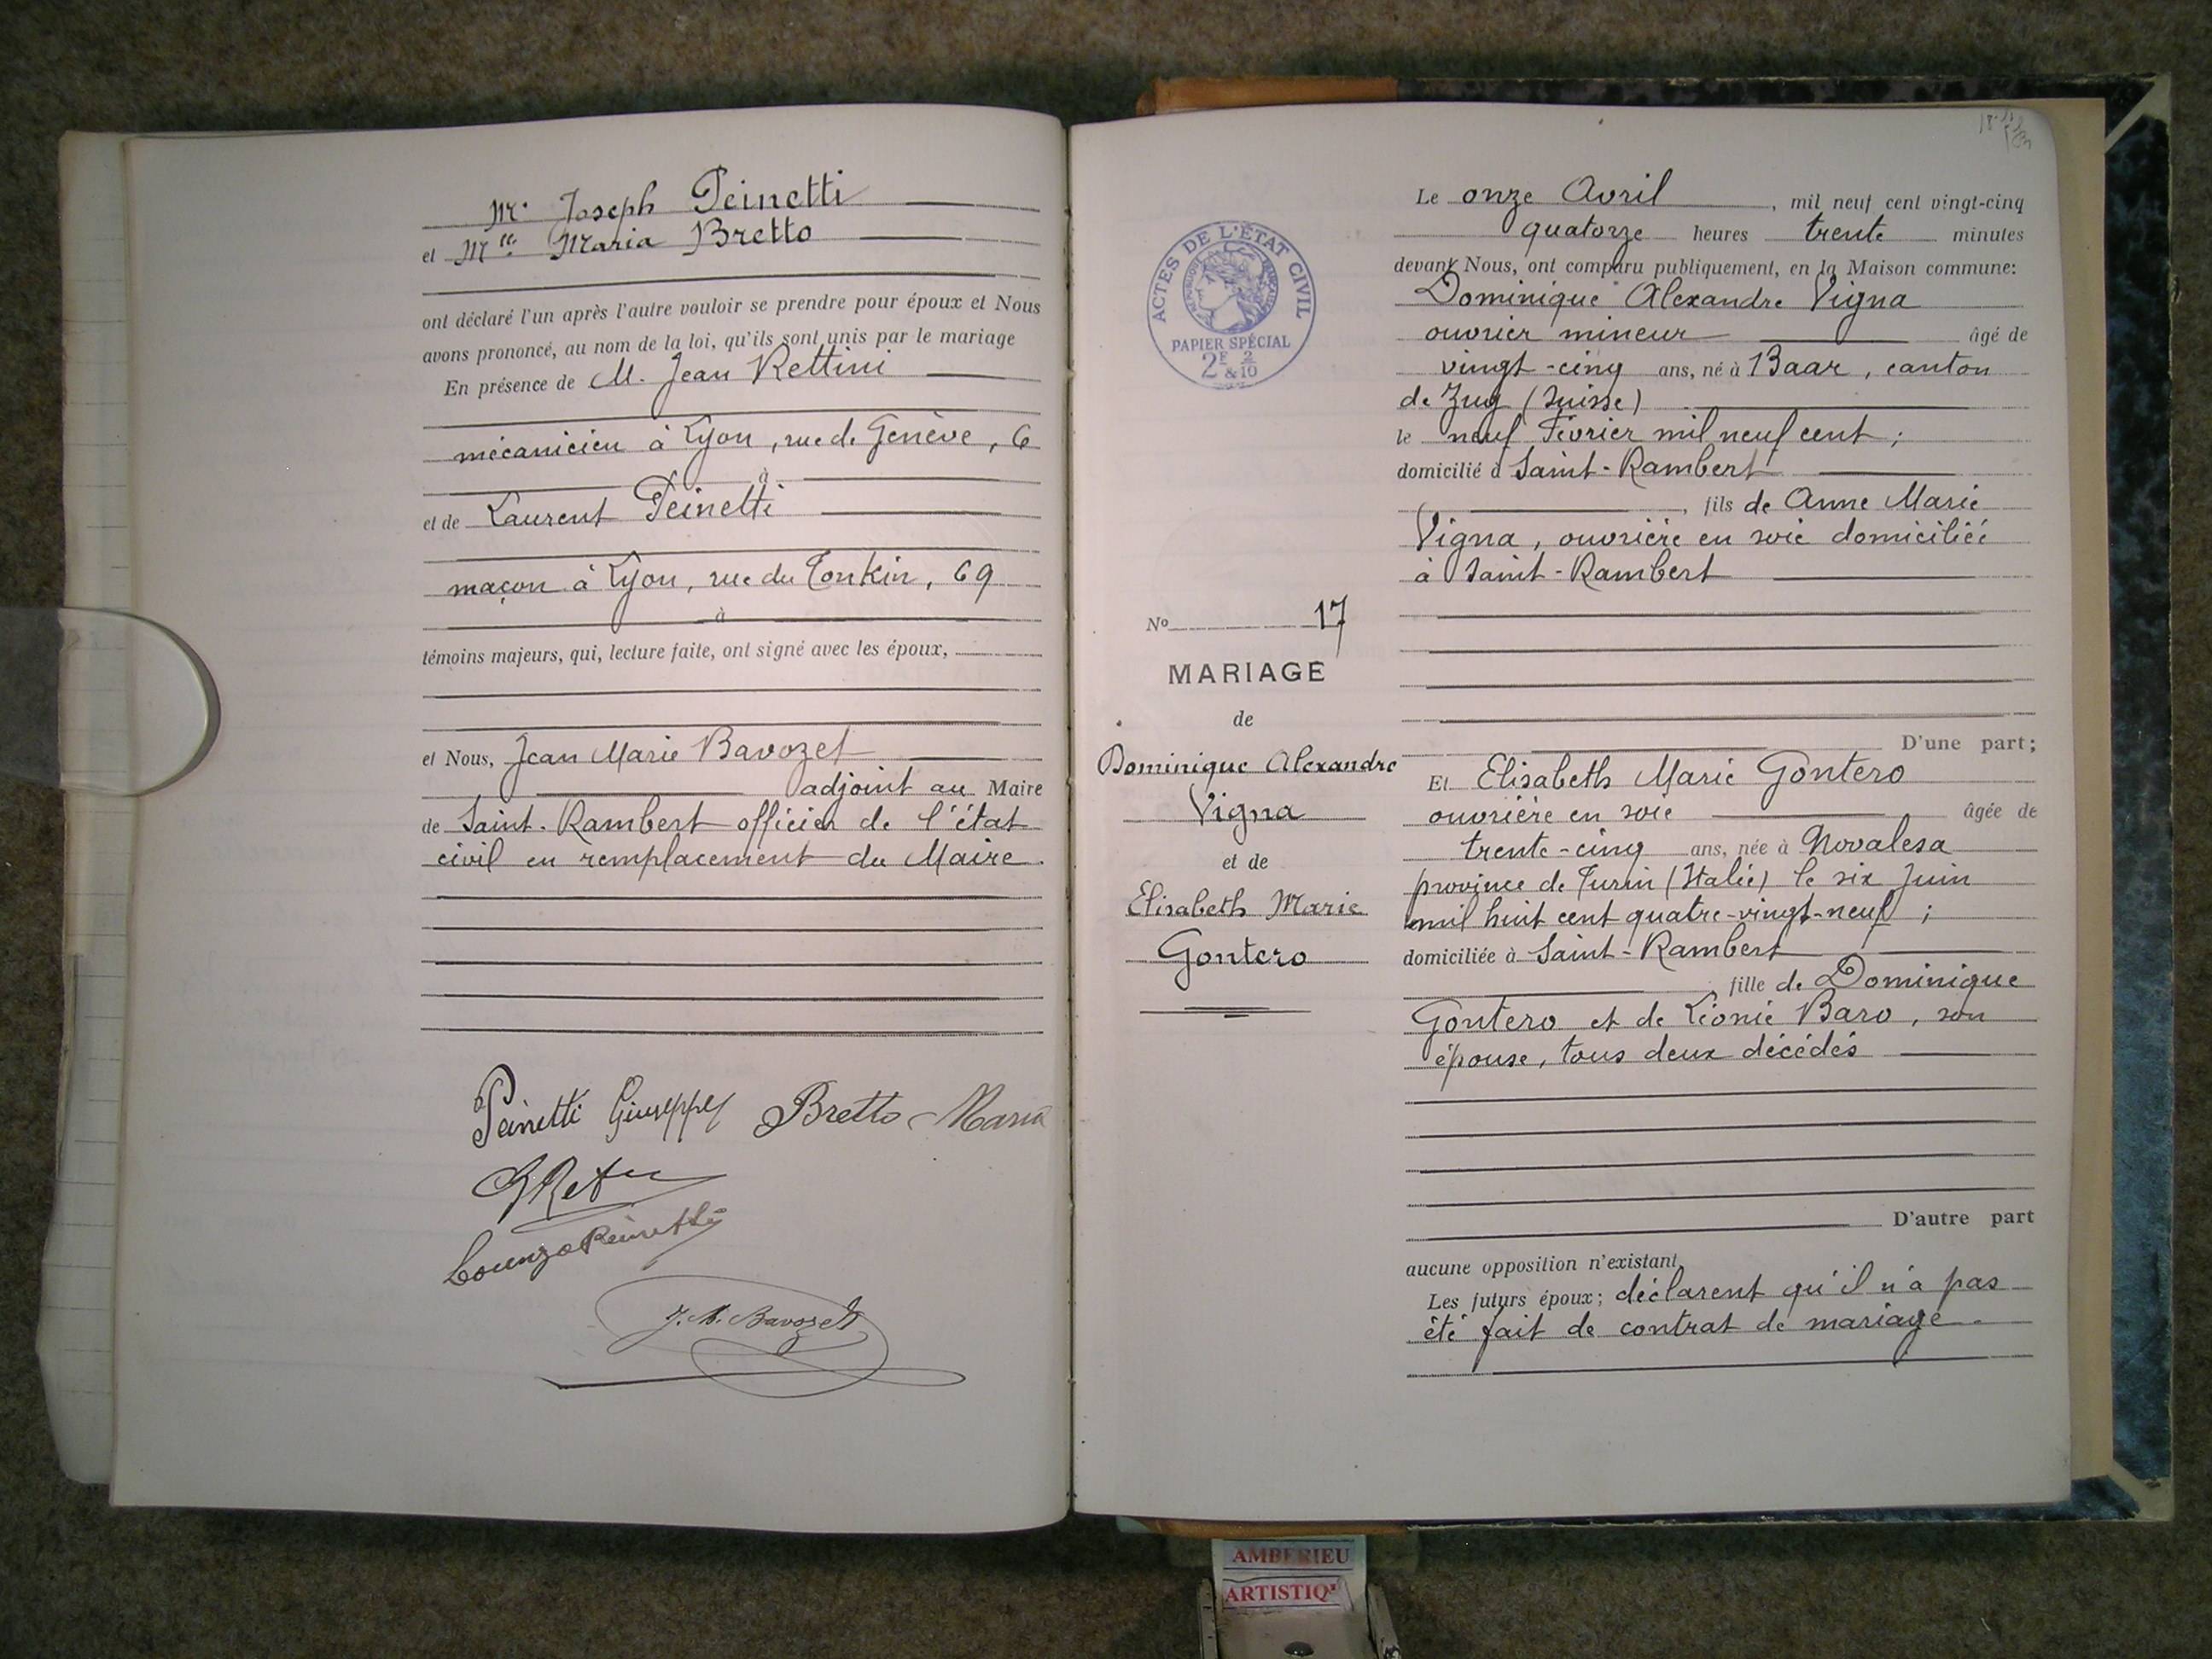 Mr. Joseph Peinetti
et Mlle Maria Bretto
ont déclaré l'un après l'autre vouloir se prendre pour époux et Nous
avons prononcé, au nom de la loi, qu'ils sont unis par le mariage
En présence de M. Jean Rettini
mécanicien à Lyon, rue de Genève, 6
à
et de Laurent Peinetti
maçon à Lyon, rue du Tonkin, 69
à
témoins majeurs, qui, lecture faite, ont signé avec les époux,
et Nous, Jean Marie Bavozet
adjoint au Maire
de Saint-Rambert officier de l'état
civil en remplacement du Maire.
Peinetti Giuseppe Bretto Maria
Peinetti
J. M. Bavozet
ACTES DE L'ÉTAT CIVIL
PAPIER SPÉCIAL
2F & 2/10
No 17
MARIAGE
de
Dominique Alexandre
Vigna
et de
Elisabeth Marie
Gontero
Le onze Avril, mil neuf cent vingt-cinq
quatorze heures trente minutes
devant Nous, ont comparu publiquement, en la Maison commune:
Dominique Alexandre Vigna
ouvrier mineur âgé de
vingt-cinq ans, né à Baar, canton
de Zug (Suisse)
le neuf Février mil neuf cent ;
domicilié à Saint-Rambert
, fils de Anne Marie
Vigna, ouvrière en soie domiciliée
à Saint-Rambert
D'une part;
Et Elisabeth Marie Gontero
ouvrière en soie âgée de
trente-cinq ans, née à Novalesa
province de Turin (Italie) le six Juin
mil huit cent quatre-vingt-neuf ;
domiciliée à Saint-Rambert
, fille de Dominique
Gontero et de Léonie Baro, son
épouse, tous deux décédés
D'autre part
aucune opposition n'existant
Les futurs époux; déclarent qu'il n'a pas
été fait de contrat de mariage.
AMBERIEU
ARTISTIQ